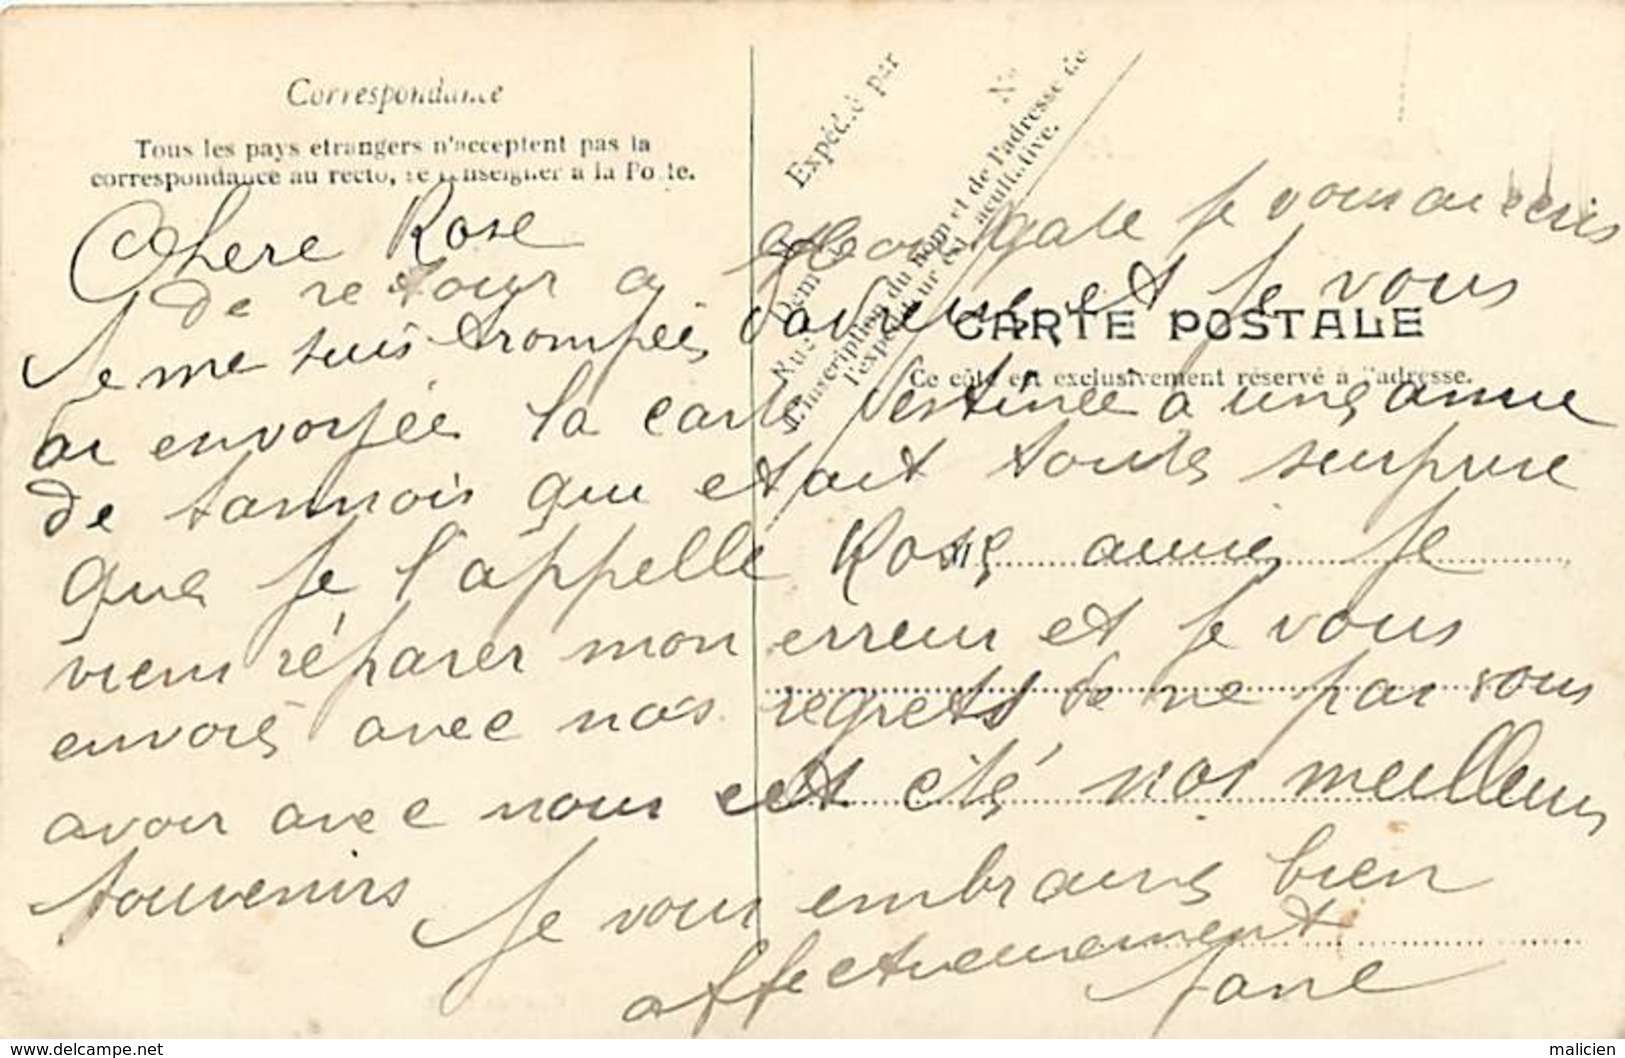 Correspondance
Tous les pays etrangers n'acceptent pas la
correspondance au recto, se renseigner a la Poste.
Expédié par
N°
Rue
L'inscription du nom et de l'adresse de
l'expéditeur est facultative.
CARTE POSTALE
Ce côté est exclusivement réservé à l'adresse.
M
Chere Rose
de retour a je vous ai ecris
Je me suis trompée et je vous
ai envoyée la carte destinée à une amie
de qui etait toute surprise
que je l'appelle Rose aussi je
viens réparer mon erreur et je vous
envois avec nos regrets de ne pas vous
avoir avec nous cet été nos meilleurs
souvenirs Je vous embrasse bien
affectueusement
Jane
https://www.delcampe.net
malicien